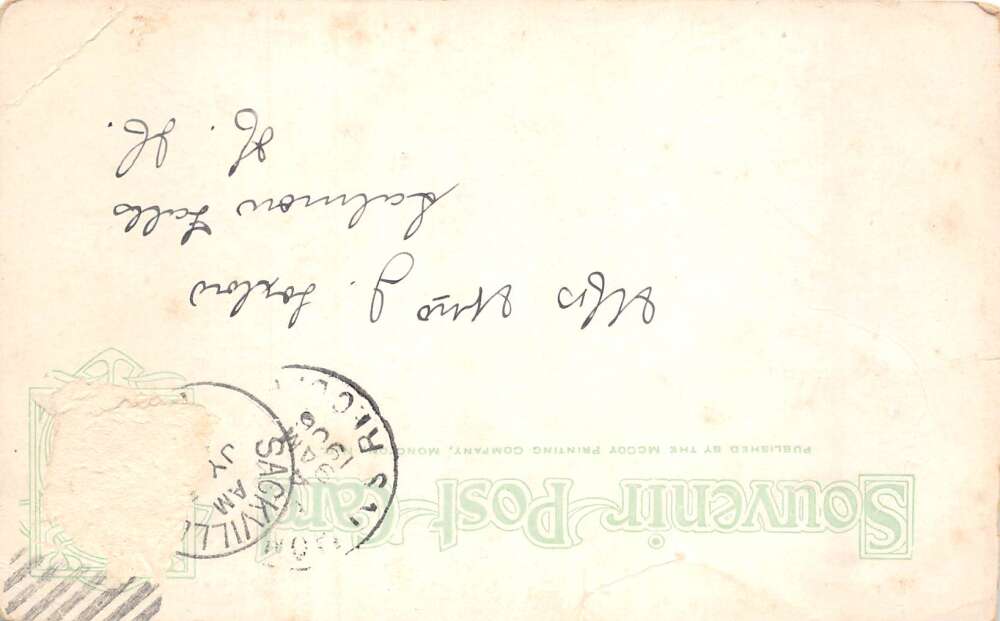 Souvenir Post Card
PUBLISHED BY THE MCCOY PRINTING COMPANY, MONCTON,
SACKVILLE
AM
JY
REC'D
9 AM
1906
Mrs Wm J. Foxlow
Salmon Falls
N. H.